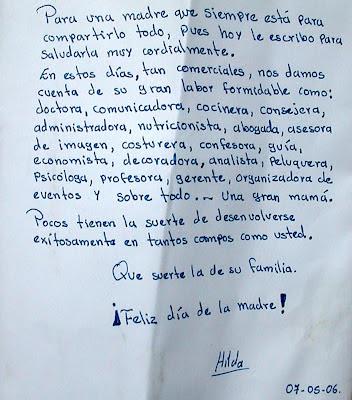 Para una madre que siempre está para
compartirlo todo, pues hoy le escribo para
saludarla muy cordialmente.
En estos días, tan comerciales, nos damos
cuenta de su gran labor formidable como:
doctora, comunicadora, cocinera, consejera,
administradora, nutricionista, abogada, asesora
de imagen, costurera, confesora, guía,
economista, decoradora, analista, Peluquera,
Psicóloga, profesora, gerente, organizadora de
eventos y sobre todo... Una gran mamá.
Pocos tienen la suerte de desenvolverse
exitosamente en tantos campos como usted.
Que suerte la de su familia.
¡Feliz día de la madre!
Hilda
07-05-06.